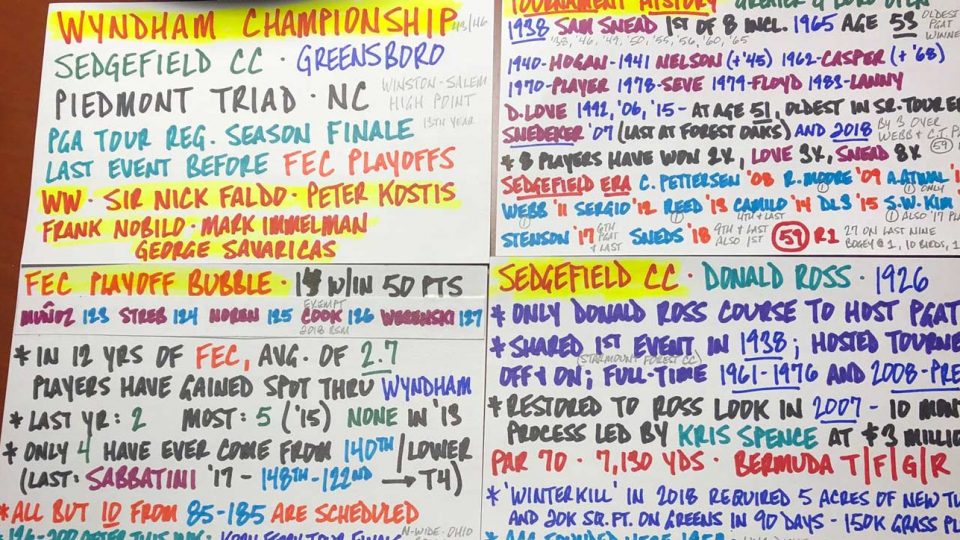 WYNDHAM CHAMPIONSHIP
SEDGEFIELD CC · GREENSBORO
PIEDMONT TRIAD · NC WINSTON-SALEM
HIGH POINT
PGA TOUR REG. SEASON FINALE 13TH YEAR
LAST EVENT BEFORE FEC PLAYOFFS
WW · SIR NICK FALDO · PETER KOSTIS
FRANK NOBILO · MARK IMMELMAN
GEORGE SAVARICAS
TOURNAMENT HISTORY GREATER G'BORO OPEN
1938 SAM SNEAD 1ST OF 8 INCL. 1965 AGE 53 OLDEST
PGAT
WINNE
'38, '46, '49, '50, '55, '56, '60, '65
1940-HOGAN - 1941 NELSON (+'45) 1962-CASPER (+'68)
1970-PLAYER 1978-SEVE 1979-FLOYD 1983-LANNY
D.LOVE 1992, '06, '15 - AT AGE 51, OLDEST IN SR. TOUR E
SNEDEKER '07 (LAST AT FOREST OAKS) AND 2018 BY 3 OVER
WEBB + C.T. PA
59
* 8 PLAYERS HAVE WON 2X, LOVE 3X, SNEAD 8X
SEDGEFIELD ERA C. PETTERSEN '08 R. MOORE '09 A. ATWAL '1
WEBB '11 SERGIO '12 REED '13 CAMILO '14 DL3 '15 S.W. KIM
4TH + LAST ALSO '17 PL
STENSON '17 6TH
PGAT
+ LAST
SNEDS '18 9TH + LAST
ALSO 1ST
59 R1 27 ON LAST NINE
BOGEY @ 1, 10 BIRDS, 1
FEC PLAYOFF BUBBLE · 14 W/IN 50 PTS
EXEMPT
MUÑOZ 123 STREB 124 NOREN 125 COOK 126 WERENSKI 127
2018 RSM
* IN 12 YRS OF FEC, AVG. OF 2.7
PLAYERS HAVE GAINED SPOT THRU WYNDHAM
* LAST YR: 2 MOST: 5 ('15) NONE IN '13
* ONLY 4 HAVE EVER COME FROM 140TH/LOWER
(LAST: SABBATINI '17 - 148TH-122ND → T4)
* ALL BUT 10 FROM 85-185 ARE SCHEDULED
N-WIDE-OHIO
SEDGEFIELD CC · DONALD ROSS · 1926
* ONLY DONALD ROSS COURSE TO HOST PGAT
* SHARED 1ST EVENT IN 1938; HOSTED TOURNE
(STARMOUNT FOREST CC)
OFF + ON; FULL-TIME 1961-1976 AND 2008-PRE
* RESTORED TO ROSS LOOK IN 2007 - 10 MON
PROCESS LED BY KRIS SPENCE AT $3 MILLIO
PAR 70 · 7,130 YDS · BERMUDA T/F/G/R
* 'WINTERKILL' IN 2018 REQUIRED 5 ACRES OF NEW TU
AND 20K SQ. FT. ON GREENS IN 90 DAYS - 150K GRASS PL